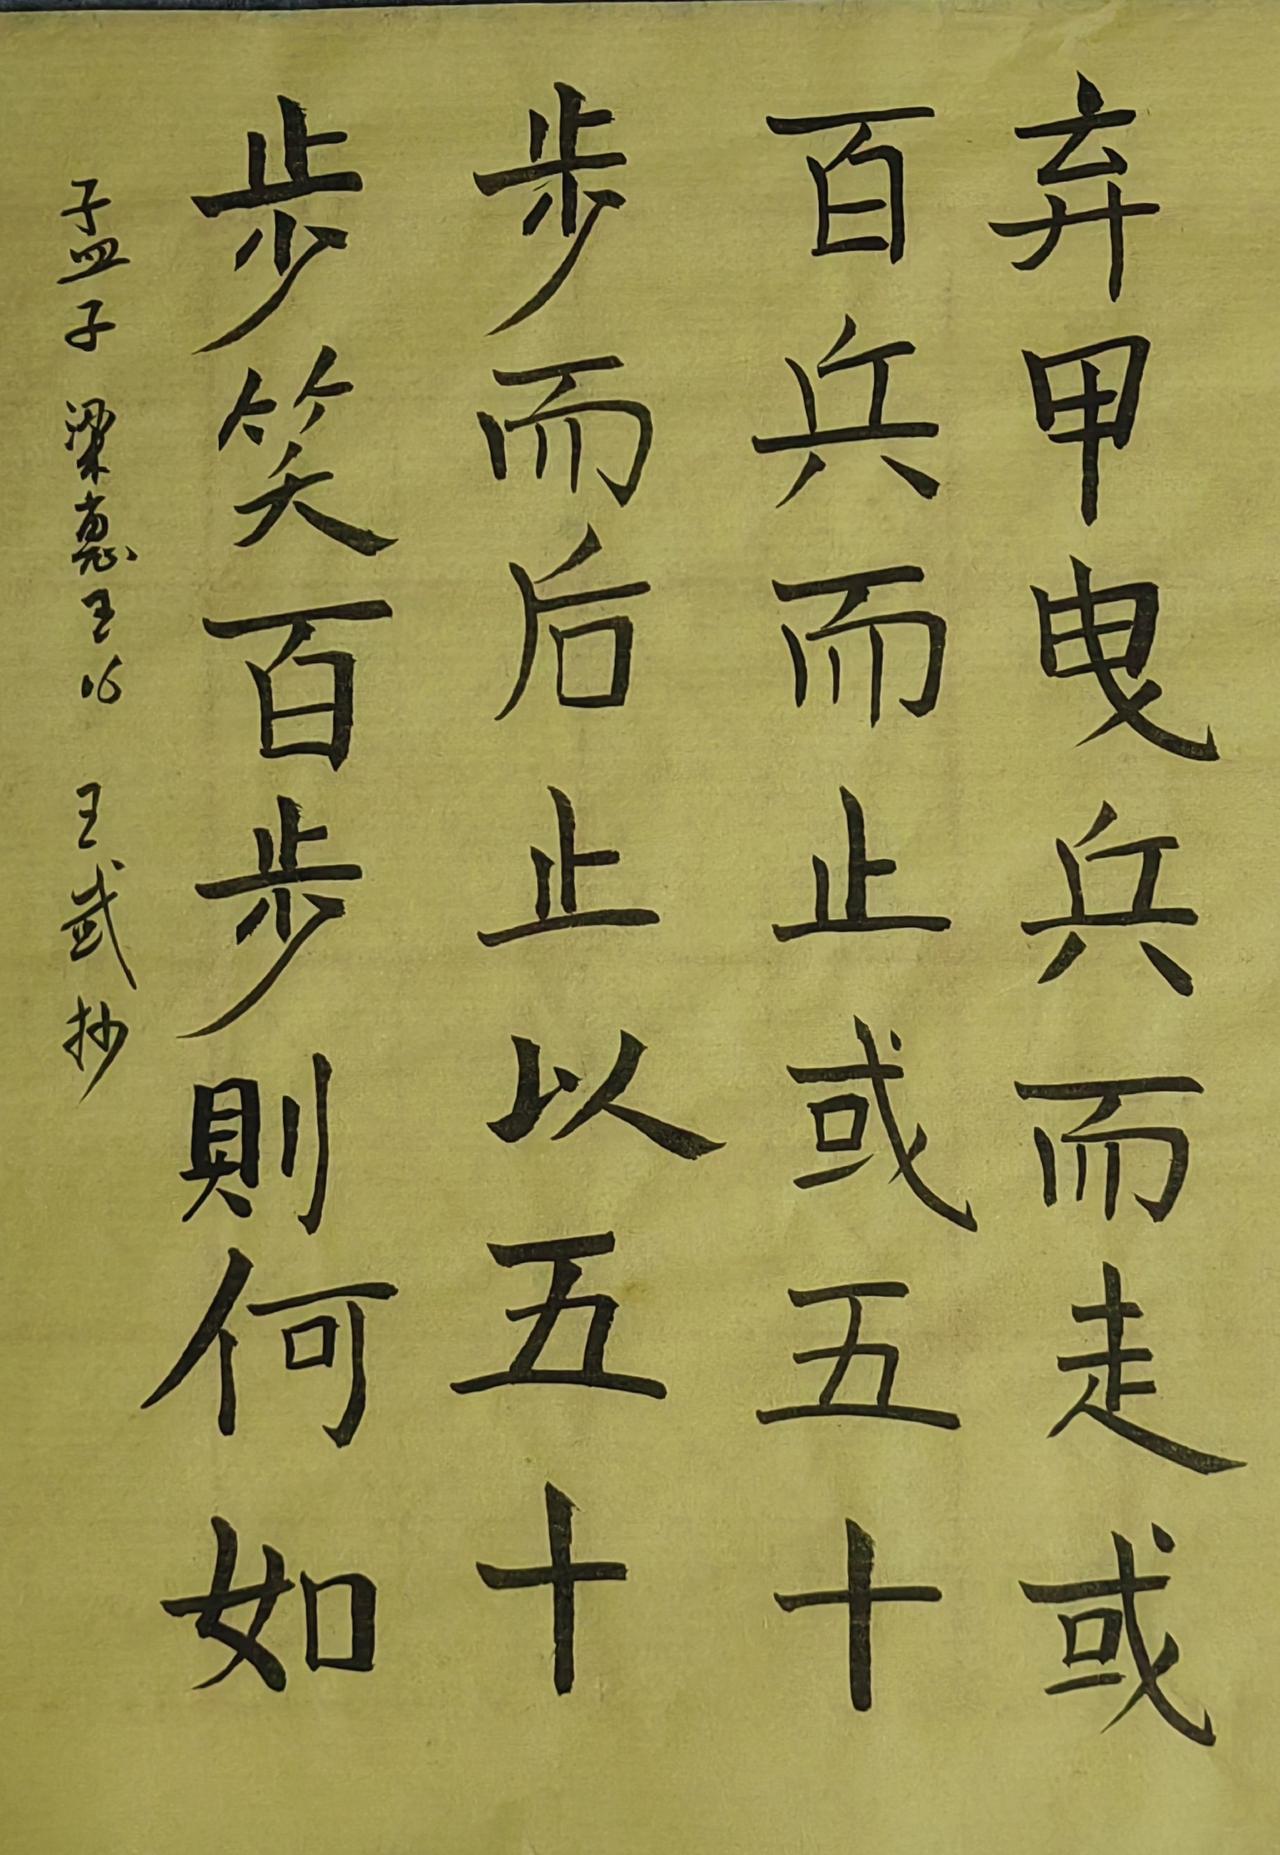 弃甲曳兵而走或
百兵而止或五十
步而后止以五十
步笑百步則何如
孟子 梁惠王 王 抄